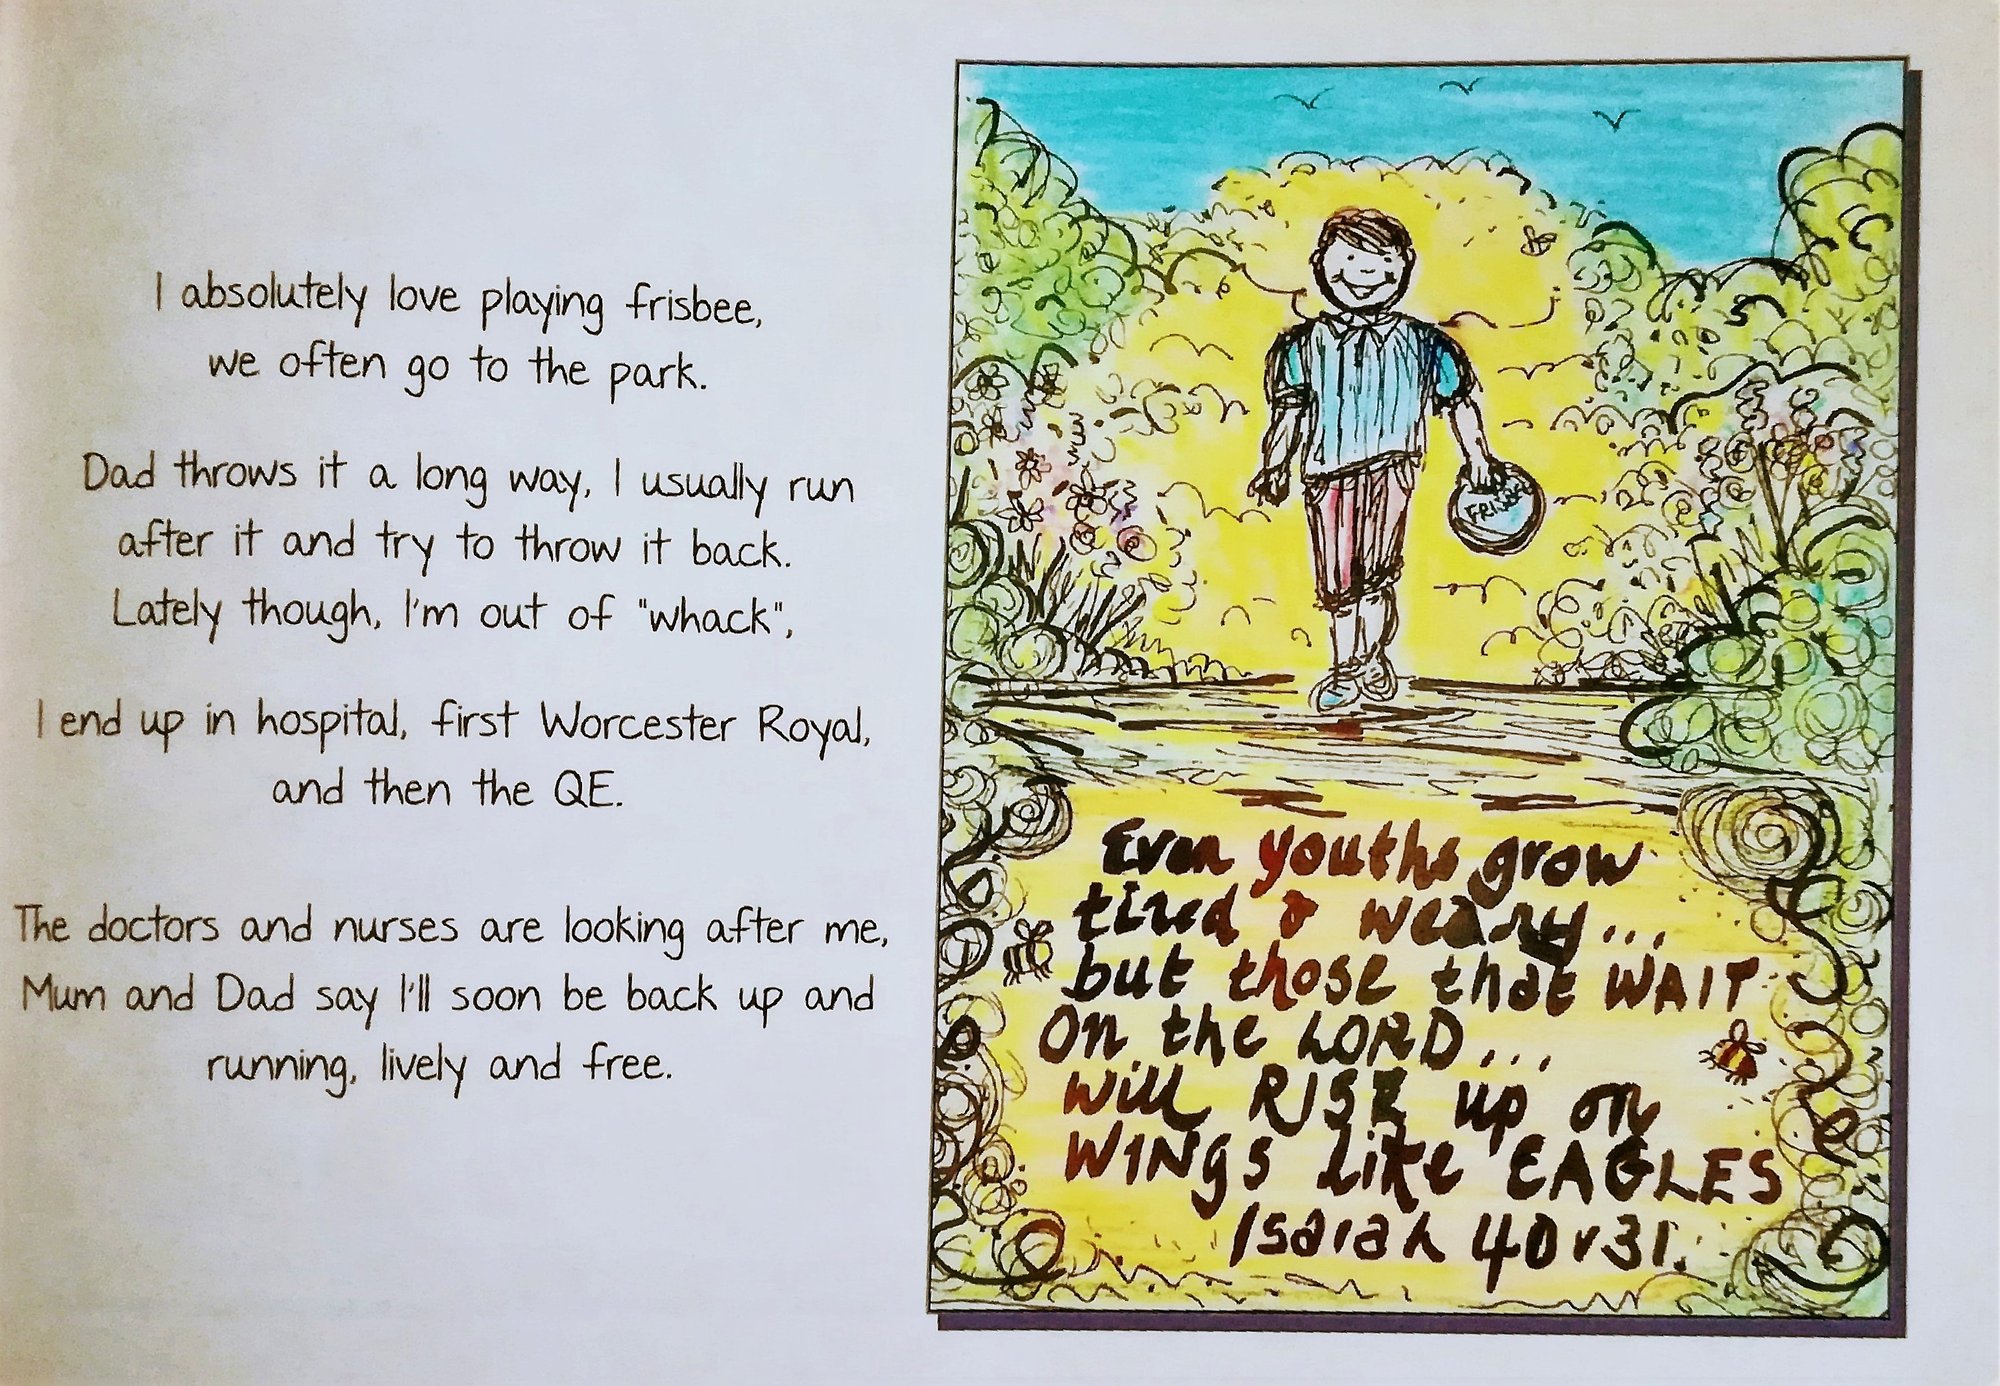 I absolutely love playing frisbee,
we often go to the park.
Dad throws it a long way, I usually run
after it and try to throw it back.
Lately though, I'm out of "whack",
I end up in hospital, first Worcester Royal,
and then the QE.
The doctors and nurses are looking after me,
Mum and Dad say I'll soon be back up and
running, lively and free.
FRISBEE
Even youths grow
tired & weary...
but those that WAIT
On the LORD...
will RISE up on
WINgS like EAGLES
Isaiah 40 v 31.